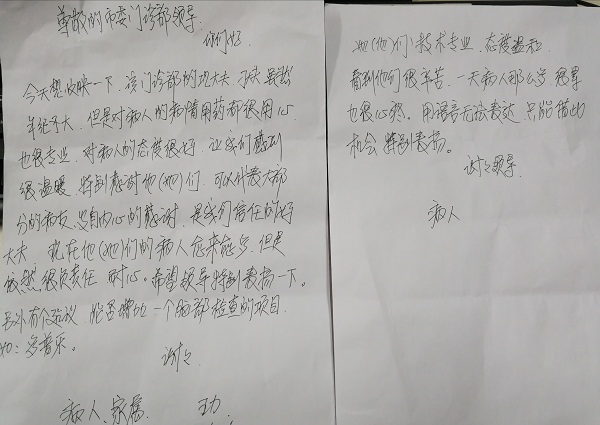 尊敬的市委门诊部领导
你们好
今天想反映一下，该门诊部的 大夫 虽然
年纪不大，但是对病人的病情用药都很用心
也很专业，对病人的态度很好，让我们感到
很温暖，特别感谢他(她)们，可以代表大部
分的病友，发自内心的感谢，是我们信任的好
大夫 现在他(她)们的病人愈来愈多，但是
依然很负责任 耐心。希望领导特别表扬一下。
另外有个建议，能否增加一个 部检查的项目
如：多普乐。
谢谢
病人、家属
他(她)们技术专业，态度温和
看到他们很辛苦，一天病人那么多，
也很心疼。用语言无法表达，只能借此
机会 特别表扬。
谢谢领导
病人